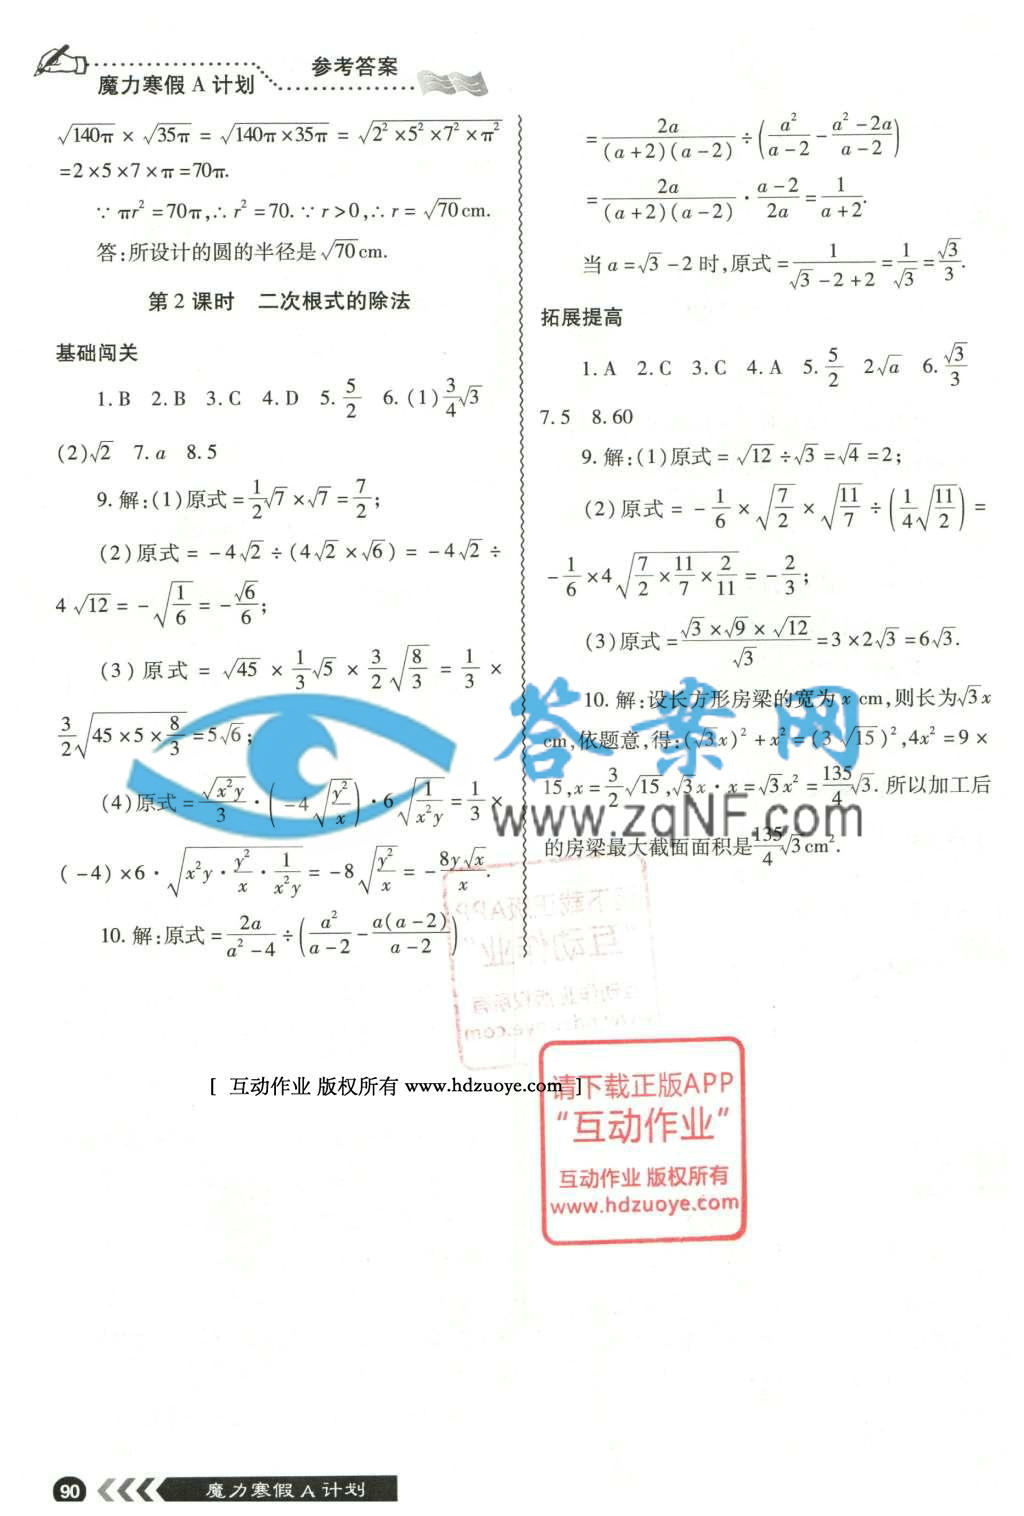 参考答案
魔力寒假 A 计划
√(140π) × √(35π) = √(140π×35π) = √(2²×5²×7²×π²)
=2×5×7×π=70π.
∵ πr²=70π,∴ r²=70. ∵ r>0,∴ r=√70 cm.
答:所设计的圆的半径是√70 cm.
第 2 课时 二次根式的除法
基础闯关
1. B 2. B 3. C 4. D 5. 5/2 6. (1) 3/4 √3
(2)√2 7. a 8. 5
9. 解:(1)原式= 1/2 √7 ×√7 = 7/2;
(2)原式= -4√2 ÷(4√2 ×√6) = -4√2 ÷
4√12 = -√(1/6) = -√6/6;
(3)原式 = √45 × 1/3 √5 × 3/2 √(8/3) = 1/3 ×
3/2 √(45×5×8/3) =5√6;
(4)原式= √(x²y)/3 · (-4√(y²/x)) · 6√(1/(x²y)) = 1/3 ×
(-4)×6·√(x²y·y²/x·1/(x²y)) = -8√(y²/x) = -8y√x/x.
10. 解:原式= 2a/(a²-4) ÷(a²/(a-2) - a(a-2)/(a-2))
= 2a/((a+2)(a-2)) ÷(a²/(a-2) - (a²-2a)/(a-2))
= 2a/((a+2)(a-2)) · (a-2)/2a = 1/(a+2).
当 a=√3-2 时,原式= 1/(√3-2+2) = 1/√3 = √3/3.
拓展提高
1. A 2. C 3. C 4. A 5. 5/2 2√a 6. √3/3
7. 5 8. 60
9. 解:(1)原式= √12÷√3=√4=2;
(2)原式= -1/6 ×√(7/2) ×√(11/7) ÷(1/4 √(11/2)) =
-1/6 ×4√(7/2×11/7×2/11) = -2/3;
(3)原式= (√3×√9×√12)/√3 =3×2√3=6√3.
10. 解:设长方形房梁的宽为 x cm,则长为√3 x
cm,依题意,得:(√3x)²+x²=(3√15)²,4x²=9×
15,x= 3/2 √15,√3x·x=√3x²= 135/4 √3. 所以加工后
的房梁最大截面面积是 135/4 √3 cm².
答案网
www.zqNF.com
[ 互动作业 版权所有 www.hdzuoye.com ]
请下载正版APP
“互动作业”
互动作业 版权所有
www.hdzuoye.com
90 魔力寒假 A 计划